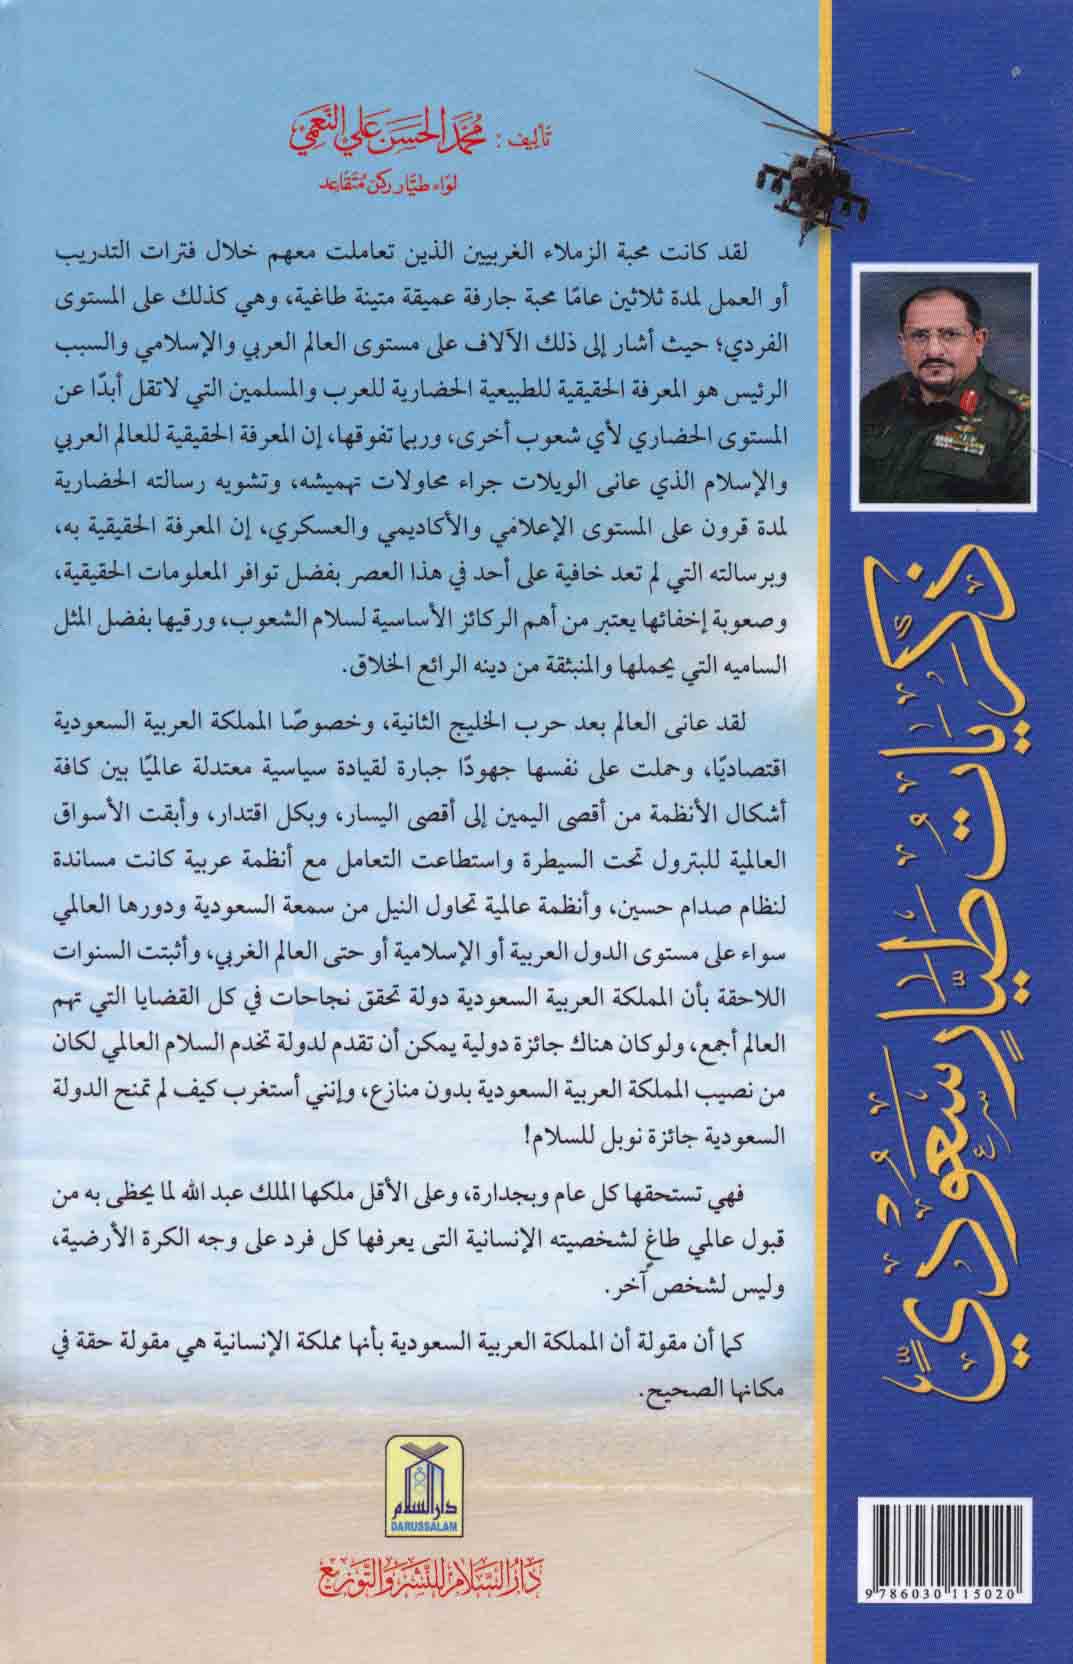 تأليف : محمد الحسن علي النعمي
لواء طيار ركن متقاعد
لقد كانت محبة الزملاء الغربيين الذين تعاملت معهم خلال فترات التدريب
أو العمل لمدة ثلاثين عامًا محبة جارفة عميقة متينة طاغية، وهي كذلك على المستوى
الفردي؛ حيث أشار إلى ذلك الآلاف على مستوى العالم العربي والإسلامي والسبب
الرئيس هو المعرفة الحقيقية للطبيعية الحضارية للعرب والمسلمين التي لاتقل أبدًا عن
المستوى الحضاري لأي شعوب أخرى، وربما تفوقها، إن المعرفة الحقيقية للعالم العربي
والإسلام الذي عانى الويلات جراء محاولات تهميشه، وتشويه رسالته الحضارية
لمدة قرون على المستوى الإعلامي والأكاديمي والعسكري، إن المعرفة الحقيقية به،
وبرسالته التي لم تعد خافية على أحد في هذا العصر بفضل توافر المعلومات الحقيقية،
وصعوبة إخفائها يعتبر من أهم الركائز الأساسية لسلام الشعوب، ورقيها بفضل المثل
الساميه التي يحملها والمنبثقة من دينه الرائع الخلاق.
لقد عانى العالم بعد حرب الخليج الثانية، وخصوصًا المملكة العربية السعودية
اقتصاديًا، وحملت على نفسها جهودًا جبارة لقيادة سياسية معتدلة عالميًا بين كافة
أشكال الأنظمة من أقصى اليمين إلى أقصى اليسار، وبكل اقتدار، وأبقت الأسواق
العالمية للبترول تحت السيطرة واستطاعت التعامل مع أنظمة عربية كانت مساندة
لنظام صدام حسين، وأنظمة عالمية تحاول النيل من سمعة السعودية ودورها العالمي
سواء على مستوى الدول العربية أو الإسلامية أو حتى العالم الغربي، وأثبتت السنوات
اللاحقة بأن المملكة العربية السعودية دولة تحقق نجاحات في كل القضايا التي تهم
العالم أجمع، ولوكان هناك جائزة دولية يمكن أن تقدم لدولة تخدم السلام العالمي لكان
من نصيب المملكة العربية السعودية بدون منازع، وإنني أستغرب كيف لم تمنح الدولة
السعودية جائزة نوبل للسلام!
فهي تستحقها كل عام وبجدارة، وعلى الأقل ملكها الملك عبد الله لما يحظى به من
قبول عالمي طاغٍ لشخصيته الإنسانية التى يعرفها كل فرد على وجه الكرة الأرضية،
وليس لشخص آخر.
كما أن مقولة أن المملكة العربية السعودية بأنها مملكة الإنسانية هي مقولة حقة في
مكانها الصحيح.
دار السلام
DARUSSALAM
دار السلام للنشر والتوزيع
ذكريات طيار سعودي
9 786030 115020